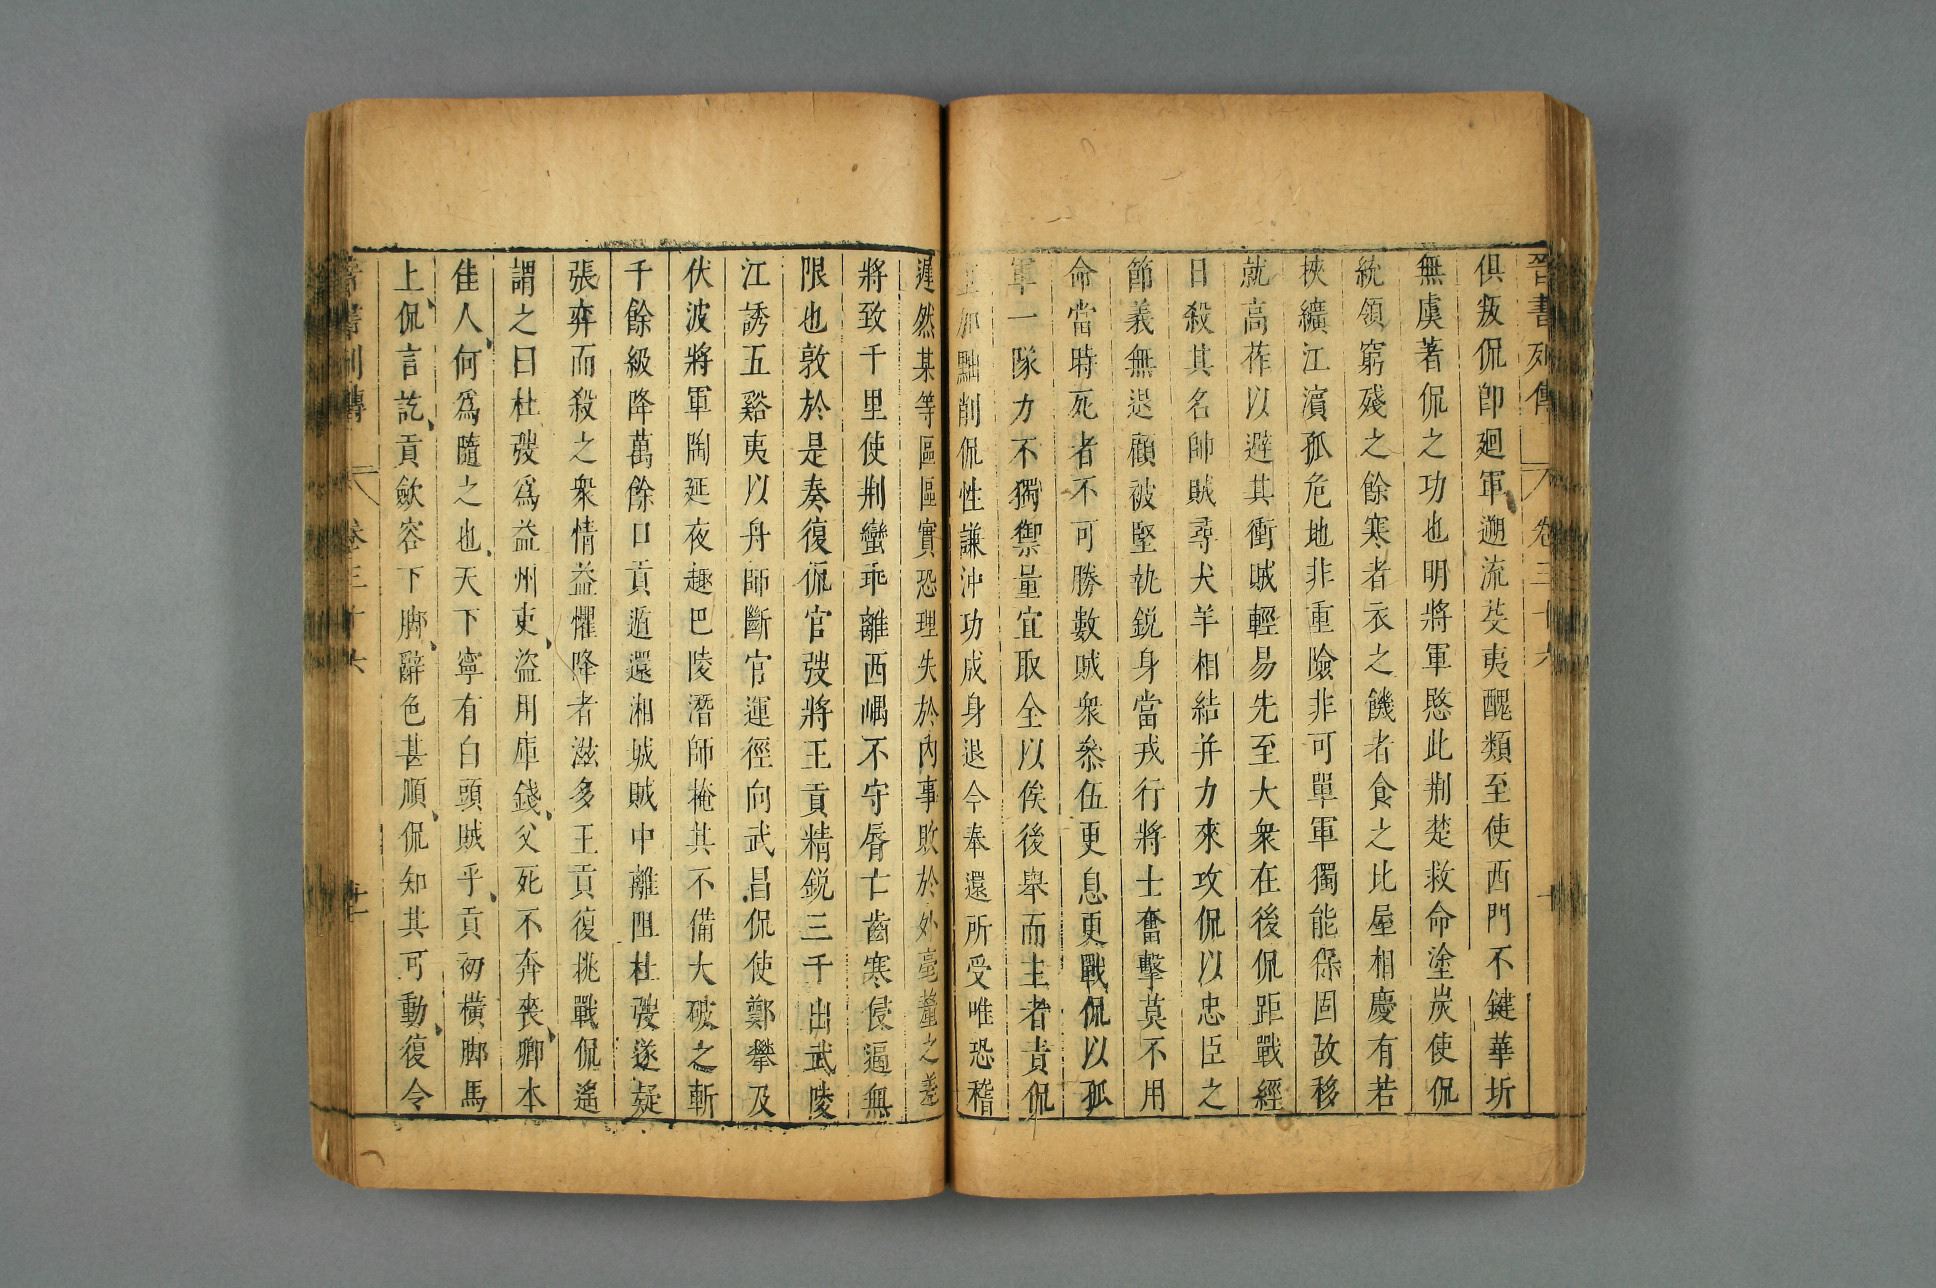 晉書列傳 卷三十六 十
俱叛侃卽廻軍遡流芟夷醜類至使西門不鍵華圻
無虞著侃之功也明將軍愍此荆楚救命塗炭使侃
統領窮殘之餘寒者衣之饑者食之比屋相慶有若
挾纊江濵孤危地非重險非可單軍獨能保固故移
就高莋以避其衝賊輕易先至大衆在後侃距戰經
日殺其名帥賊尋犬羊相結并力來攻侃以忠臣之
節義無退顧被堅執銳身當戎行將士奮擊莫不用
命當時死者不可勝數賊衆叅伍更息更戰侃以孤
軍一隊力不獨禦量宜取全以俟後舉而主者責侃
重加黜削侃性謙沖功成身退今奉還所受唯恐稽
遲然某等區區實恐理失於內事敗於外毫釐之差
將致千里使荆蠻乖離西嵎不守脣亡齒寒侵逼無
限也敦於是奏復侃官弢將王貢精銳三千出武陵
江誘五谿夷以舟師斷官運徑向武昌侃使鄭攀及
伏波將軍陶延夜趣巴陵潛師掩其不備大破之斬
千餘級降萬餘口貢遁還湘城賊中離阻杜弢遂疑
張弈而殺之衆情益懼降者滋多王貢復挑戰侃遙
謂之曰杜弢爲益州吏、盜用庫錢、父死不奔喪、卿本
佳人、何爲隨之也、天下寧有白頭賊乎、貢初橫脚馬
上、侃言訖、貢歛容下脚、辭色甚順、侃知其可動、復令
晉書列傳 卷三十六 十一